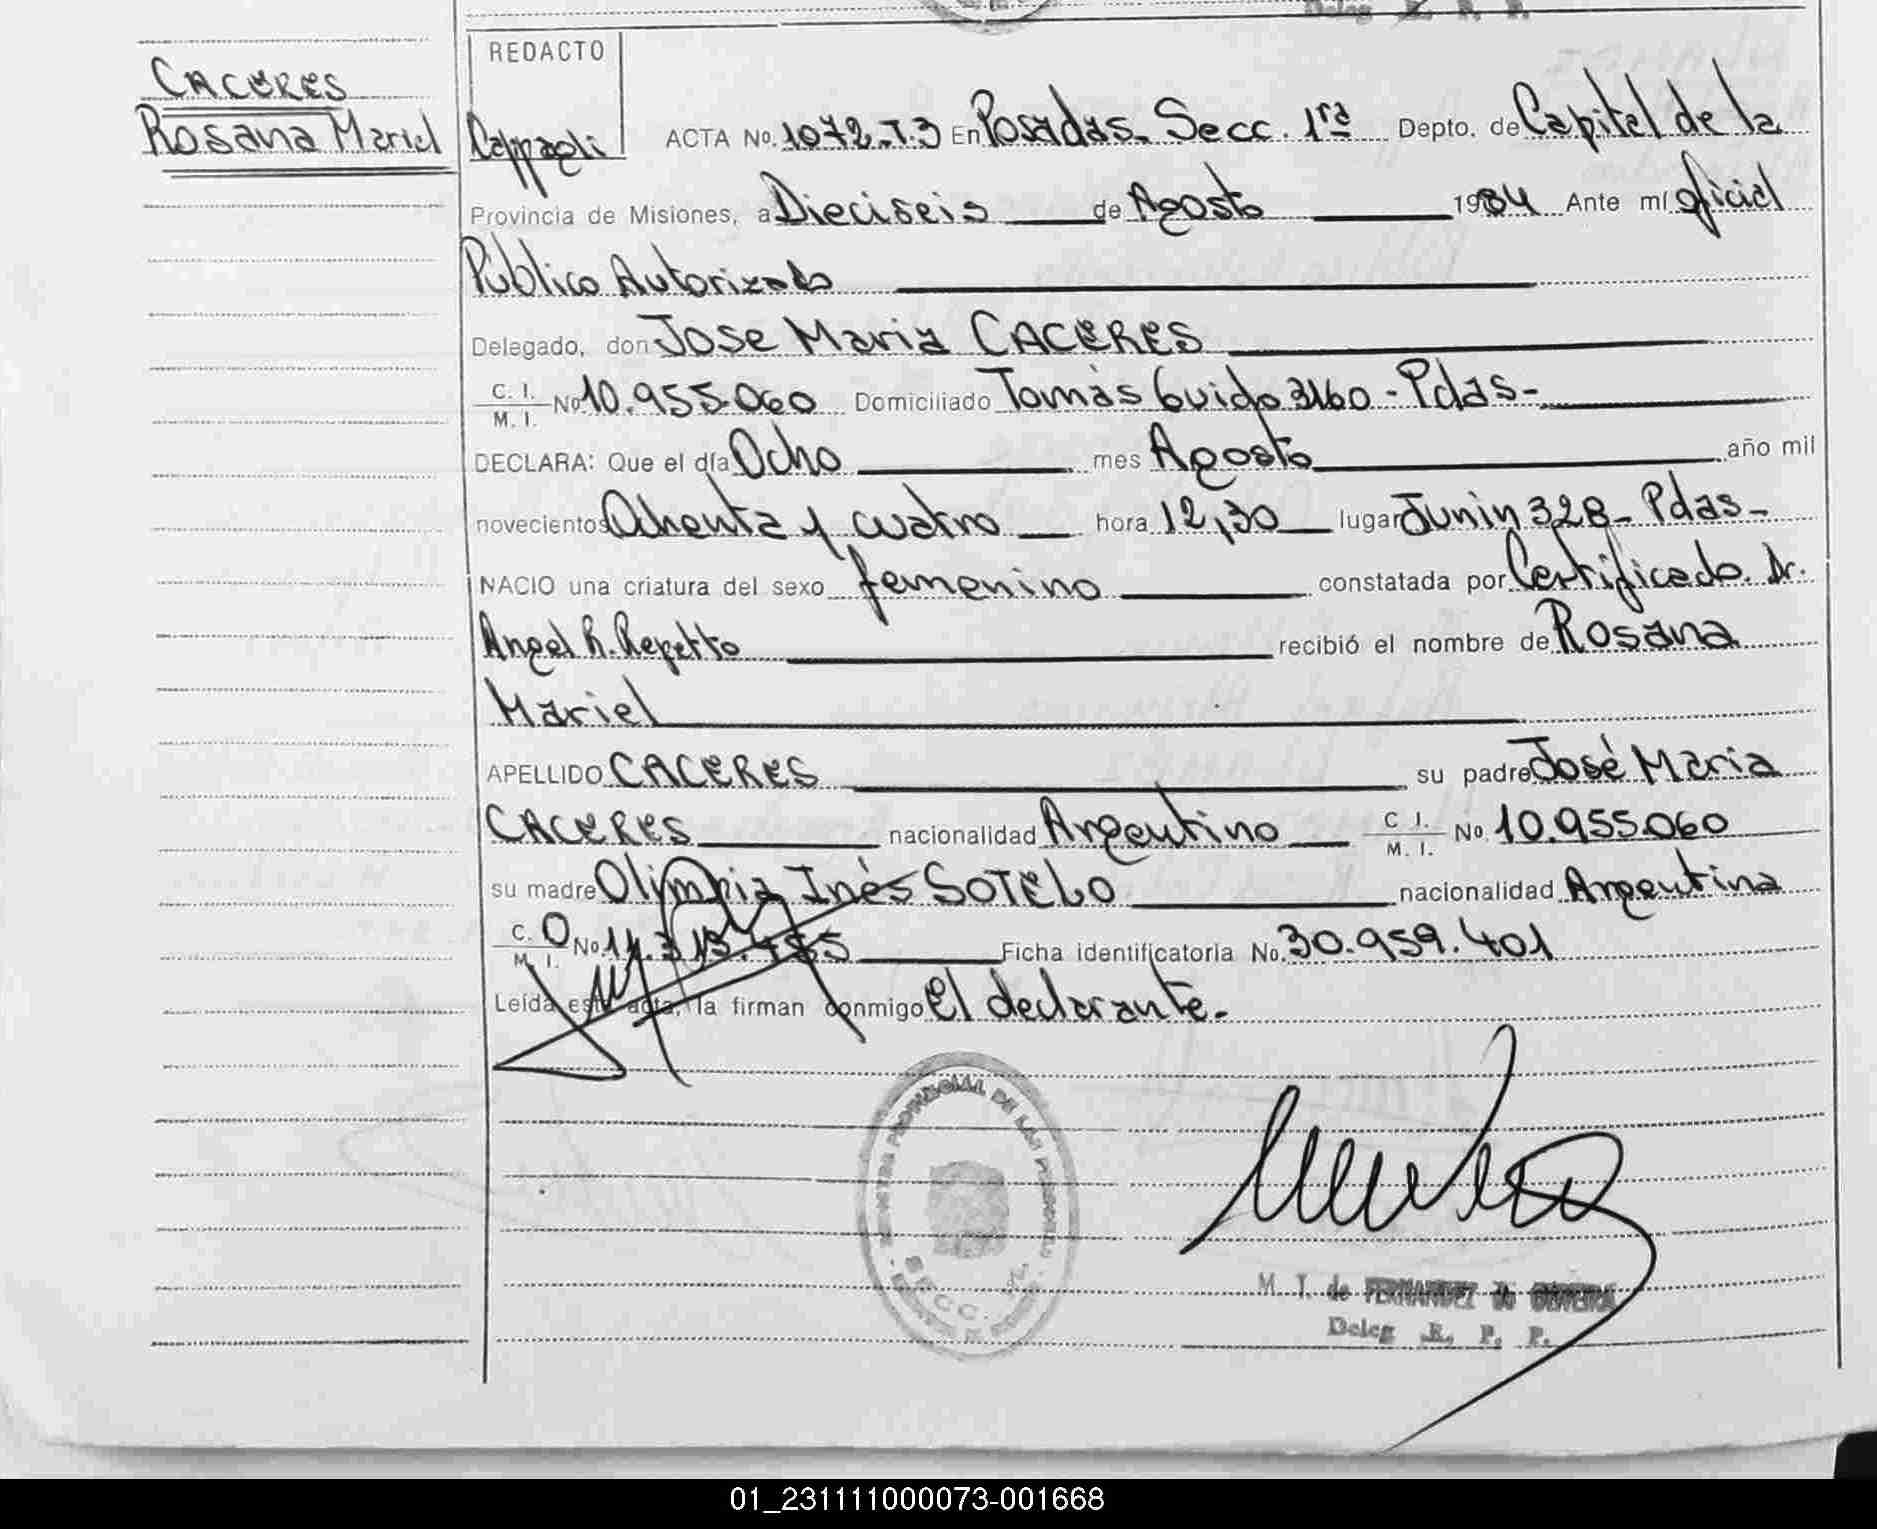 CACERES
Rosana Mariel
REDACTO
ACTA No. 1072-T.3 En Posadas. Secc. 1ra Depto. de Capital de la
Provincia de Misiones, a Dieciseis de Agosto 1984 Ante mí oficial
Público Autorizado
Delegado, don Jose Maria CACERES
C. I.
M. I.
No 10.955.060 Domiciliado Tomás Guido 3160 - Pdas-
DECLARA: Que el día Ocho mes Agosto año mil
novecientos Ochenta y cuatro hora 12,30 lugar Junin 328 - Pdas-
NACIO una criatura del sexo femenino constatada por Certificado. Dr.
Angel R. Repetto recibió el nombre de Rosana
Mariel
APELLIDO CACERES su padre José Maria
CACERES nacionalidad Argentino C I. M. I. No. 10.955.060
su madre Olimpia Inés SOTELO nacionalidad Argentina
C. M. I. No Ficha identificatoria No. 30.959.401
Leída esta acta, la firman conmigo el declarante.
M. T. de FERNANDEZ de OLIVEIRA
Deleg R. P. P.
SECC.
01_231111000073-001668